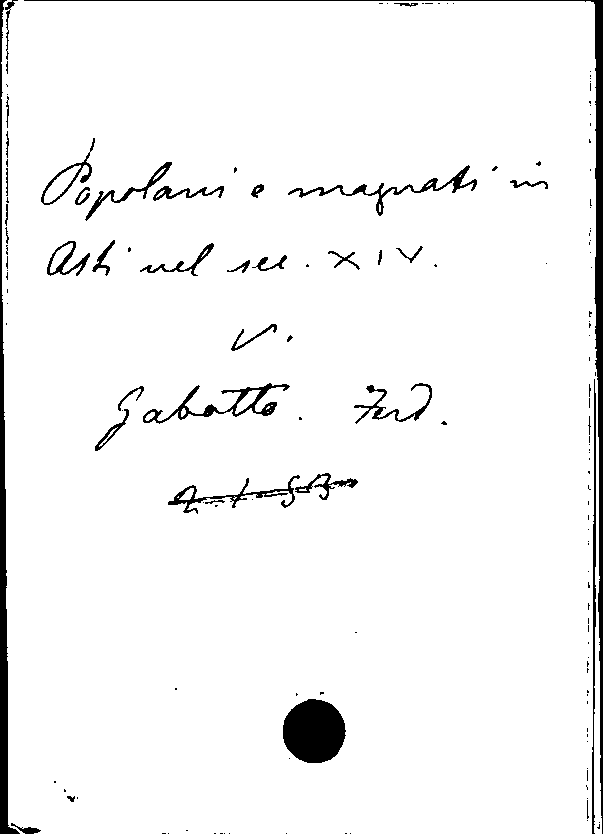 Popolani e magnati in
Asti nel sec. XIV.
V.
Gabotto. Ferd.